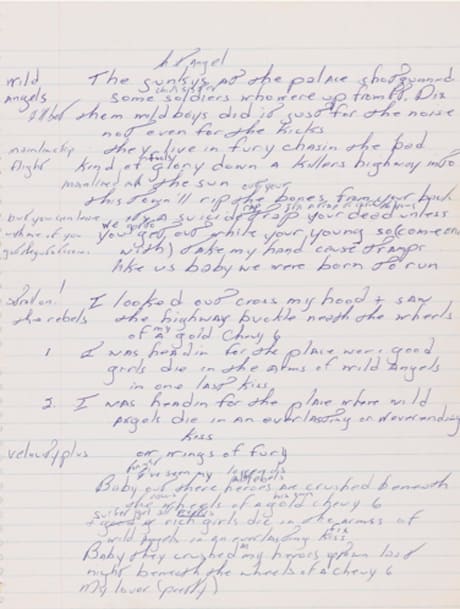 Angel
wild The junkys at the palace shotgunned
Angels some soldiers who were up from ft. Dix
them wild boys did it just for the noise
not even for the kicks
they live in fury chasin the
flight kind of glory down a killers highway into
the sun
this town'll rip the bones from your back
but you can leave
its a suicide trap your dead unless
you get out while your young so (come on
with) take my hand cause tramps
like us baby we were born to run
I looked out cross my hood + saw
the rebels the highway buckle neath the wheels
my
of a gold Chevy 6
1. I was headin for the place were good
girls die in the arms of wild Angels
in one last kiss
2. I was headin for the place where wild
Angels die in an everlasting or neverending
kiss
velocity plus on wings of fury
I've seen my
Baby out there heroes are crushed beneath
his own
the wheels of a gold chevy 6
rich girls die in the arms of
wild Angels in an everlasting kiss
Baby they crushed my heros down last
night beneath the wheels of a Chevy 6
My lover (pretty)